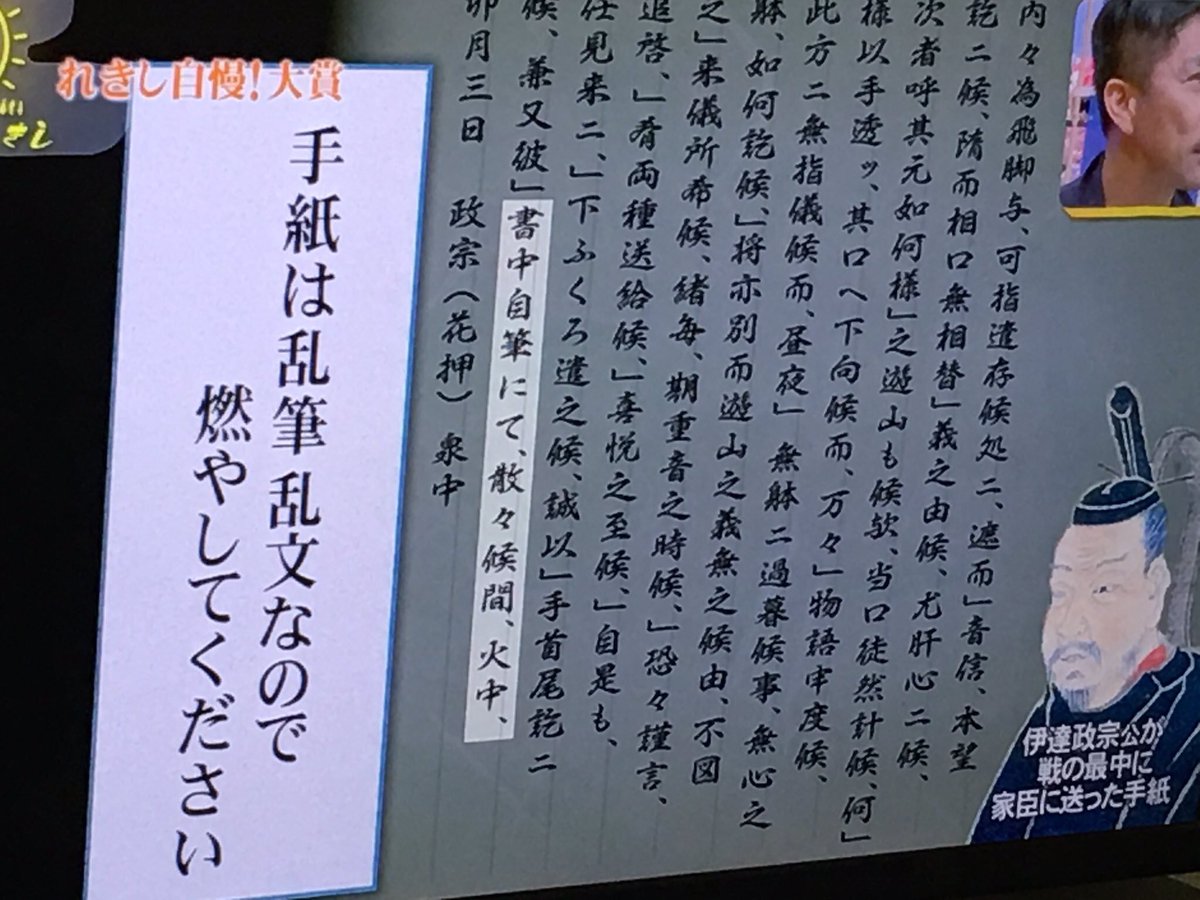 れきし自慢！大賞
さし
内々為飛脚与、可指遣存候処ニ、遮而」音信、本望
訖ニ候、隋而相口無相替」義之由候、尤肝心ニ候、
次者呼其元如何様」之遊山も候欤、当口徒然計候、何」
様以手透ッ、其口へ下向候而、万々」物語申度候、
此方ニ無指儀候而、昼夜」無躰ニ過暮候事、無心之
躰、如何訖候、」将亦別而遊山之義無之候由、不図
之」来儀所希候、緒毎、期重音之時候、」恐々謹言、
追啓、」肴両種送給候、」喜悦之至候、」自是も、
任見来ニ、」下ふくろ遣之候、誠以」手首尾訖ニ
候、兼又彼」書中自筆にて、散々候間、火中、
卯月三日　政宗（花押）　泉中
手紙は乱筆乱文なので
燃やしてください
伊達政宗公が
戦の最中に
家臣に送った手紙